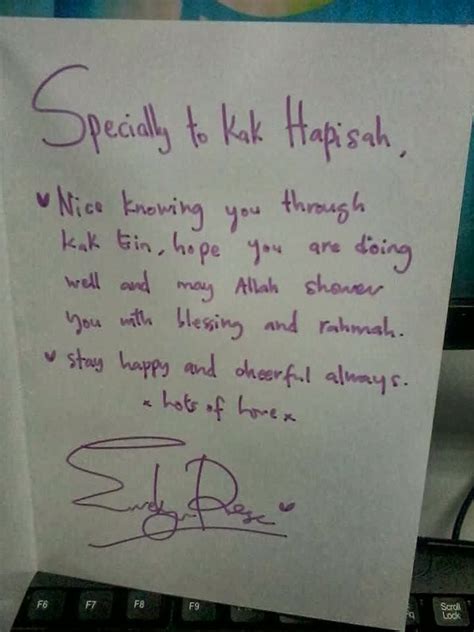 Specially to Kak Hapisah,
Nice knowing you through
Kak Ein, hope you are doing
well and may Allah shower
you with blessing and rahmah.
stay happy and cheerful always.
x hots of hove x
F6 F7 F8 F9 Scroll Lock